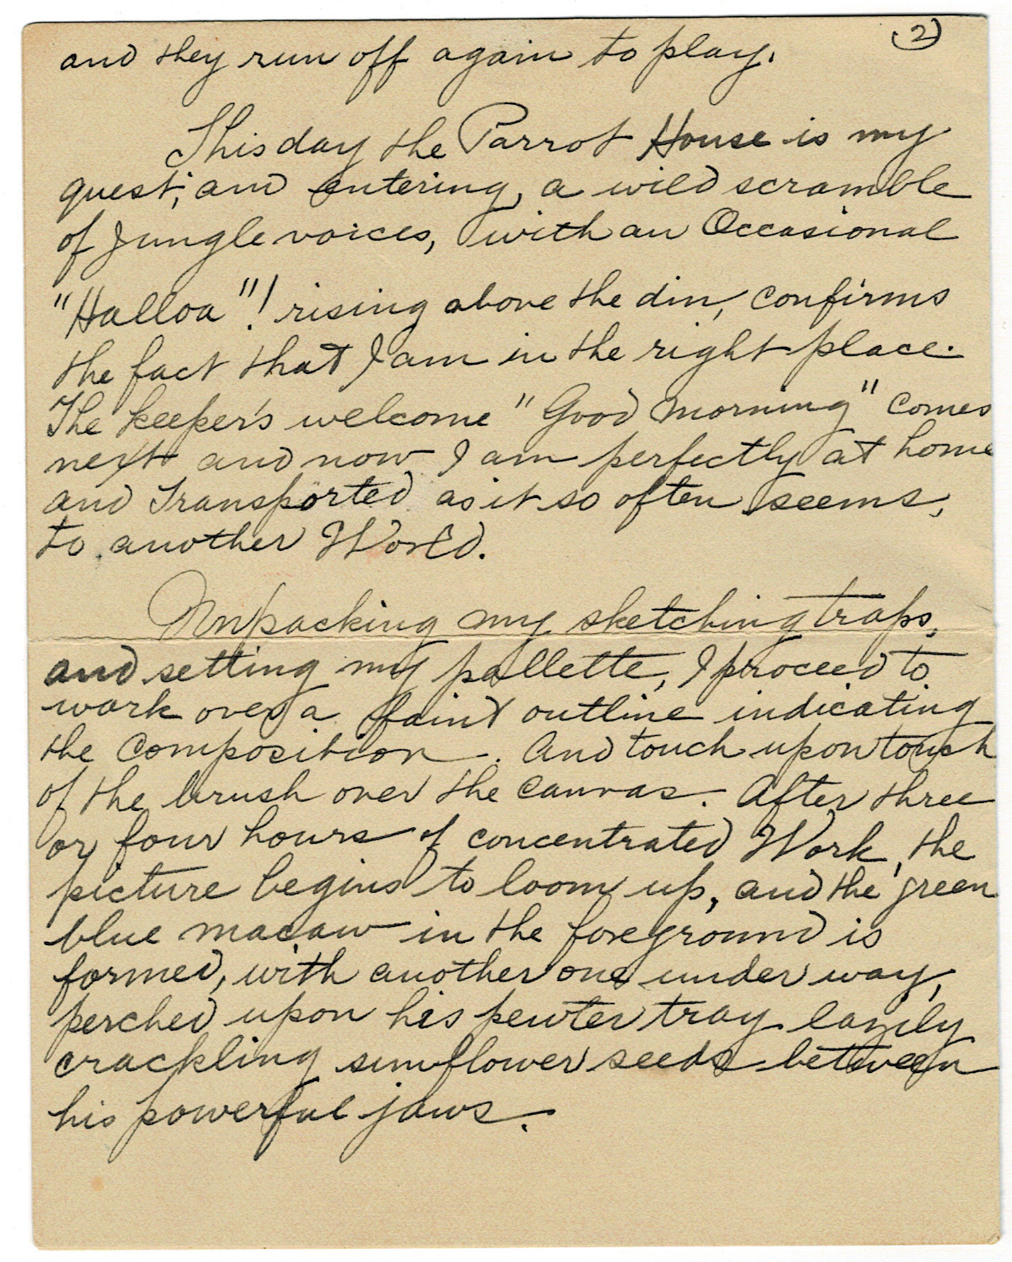 2
and they run off again to play.
This day the Parrot House is my
quest; and entering, a wild scramble
of Jungle voices, with an Occasional
"Halloa"! rising above the din, confirms
the fact that I am in the right place.
The keeper's welcome "Good Morning" comes
next and now I am perfectly at home
and Transported as it so often seems,
to another World.
Unpacking my sketching traps,
and setting my pallette, I proceed to
work over a faint outline indicating
the Composition. And touch upon touch
of the brush over the canvas. After three
or four hours of concentrated Work, the
picture begins to loom up, and the green
blue macaw in the foreground is
formed, with another one under way,
perched upon his pewter tray lazily
crackling sunflower seeds between
his powerful jaws.